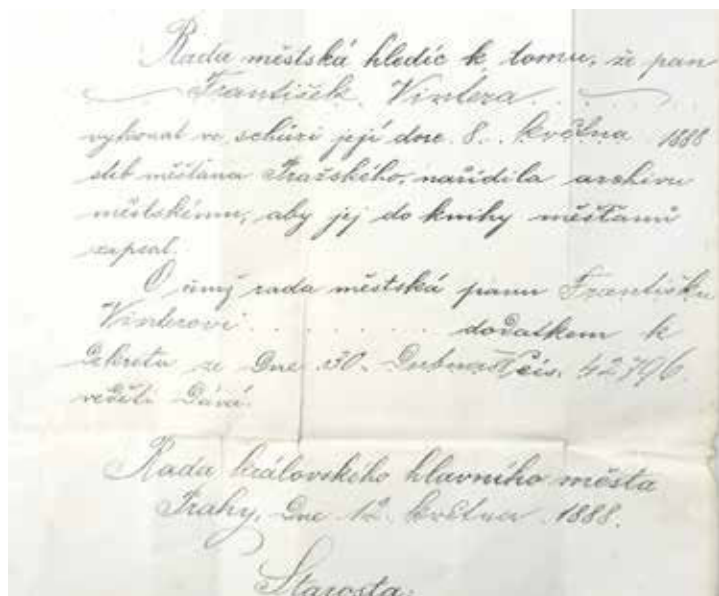 Rada městská hledíc k tomu, že pan
František Vintera
vykonal ve schůzi její dne 8. května 1888
slib měšťana Pražského, nařídila archivu
městskému, aby jej do knihy měšťanů
zapsal.
O čemž rada městská panu Františku
Vinterovi dodatkem k
dekretu ze dne 30. Dubna čís. 42796
věděti dává.
Rada královského hlavního města
Prahy, dne 12. května 1888.
Starosta: